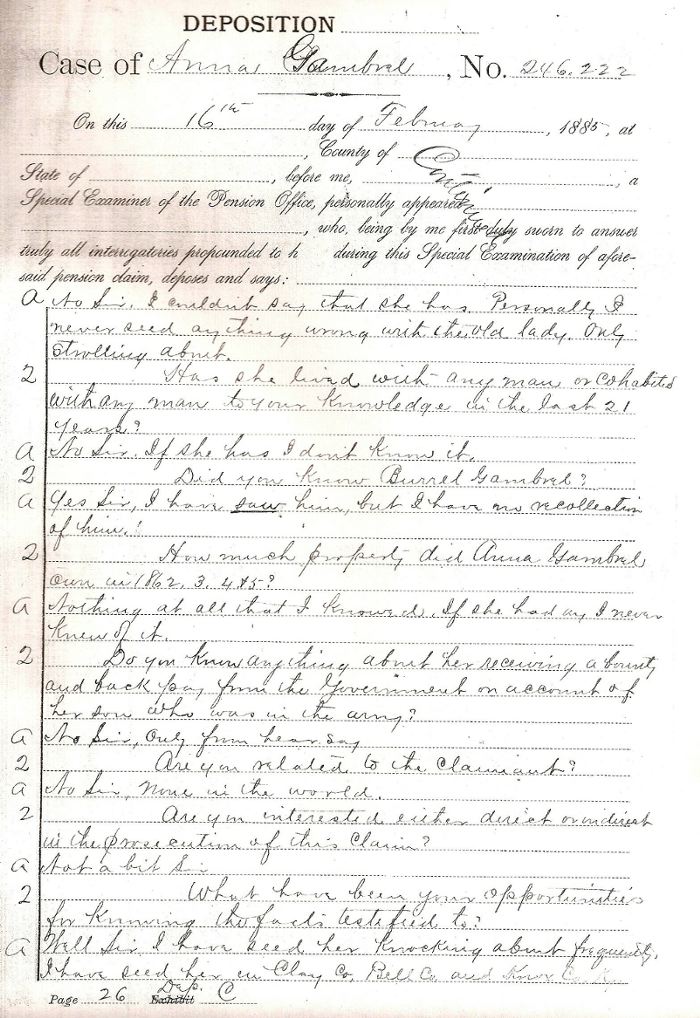 DEPOSITION
Case of Anna Gambrel, No. 246.222
On this 16th day of February, 1885, at
, County of
State of , before me, , a
Special Examiner of the Pension Office, personally appeared
, who, being by me first duly sworn to answer
truly all interrogatories propounded to h during this Special Examination of afore-
said pension claim, deposes and says:
a No Sir. I couldn't say that she has. Personally I
never seed anything wrong with the old lady. Only
strolling about.
2 Has she lived with any man or cohabited
with any man to your Knowledge in the last 21
years?
a No Sir. If she has I don't Know it.
2 Did you Know Burrel Gambrel?
a Yes Sir, I have saw him, but I have no recollection
of him.
2 How much property did Anna Gambrel
own in 1862. 3. 4 & 5?
a Nothing at all that I Knowed. If she had any I never
Knew of it.
2 Do you Know anything about her receiving a bounty
and back pay from the Government on account of
her son who was in the army?
a No Sir, Only from hear say
2 Are you related to the Claimant?
a No Sir, None in the world.
2 Are you interested either direct or indirect
in the prosecution of this Claim?
a Not a bit Sir
2 What have been your opportunities
for Knowing the facts testified to?
a Well Sir I have seed her Knocking about frequently,
I have seed her in Clay Co, Bell Co. and Knox Co. Ky.
Page 26 Exhibit Dep. C